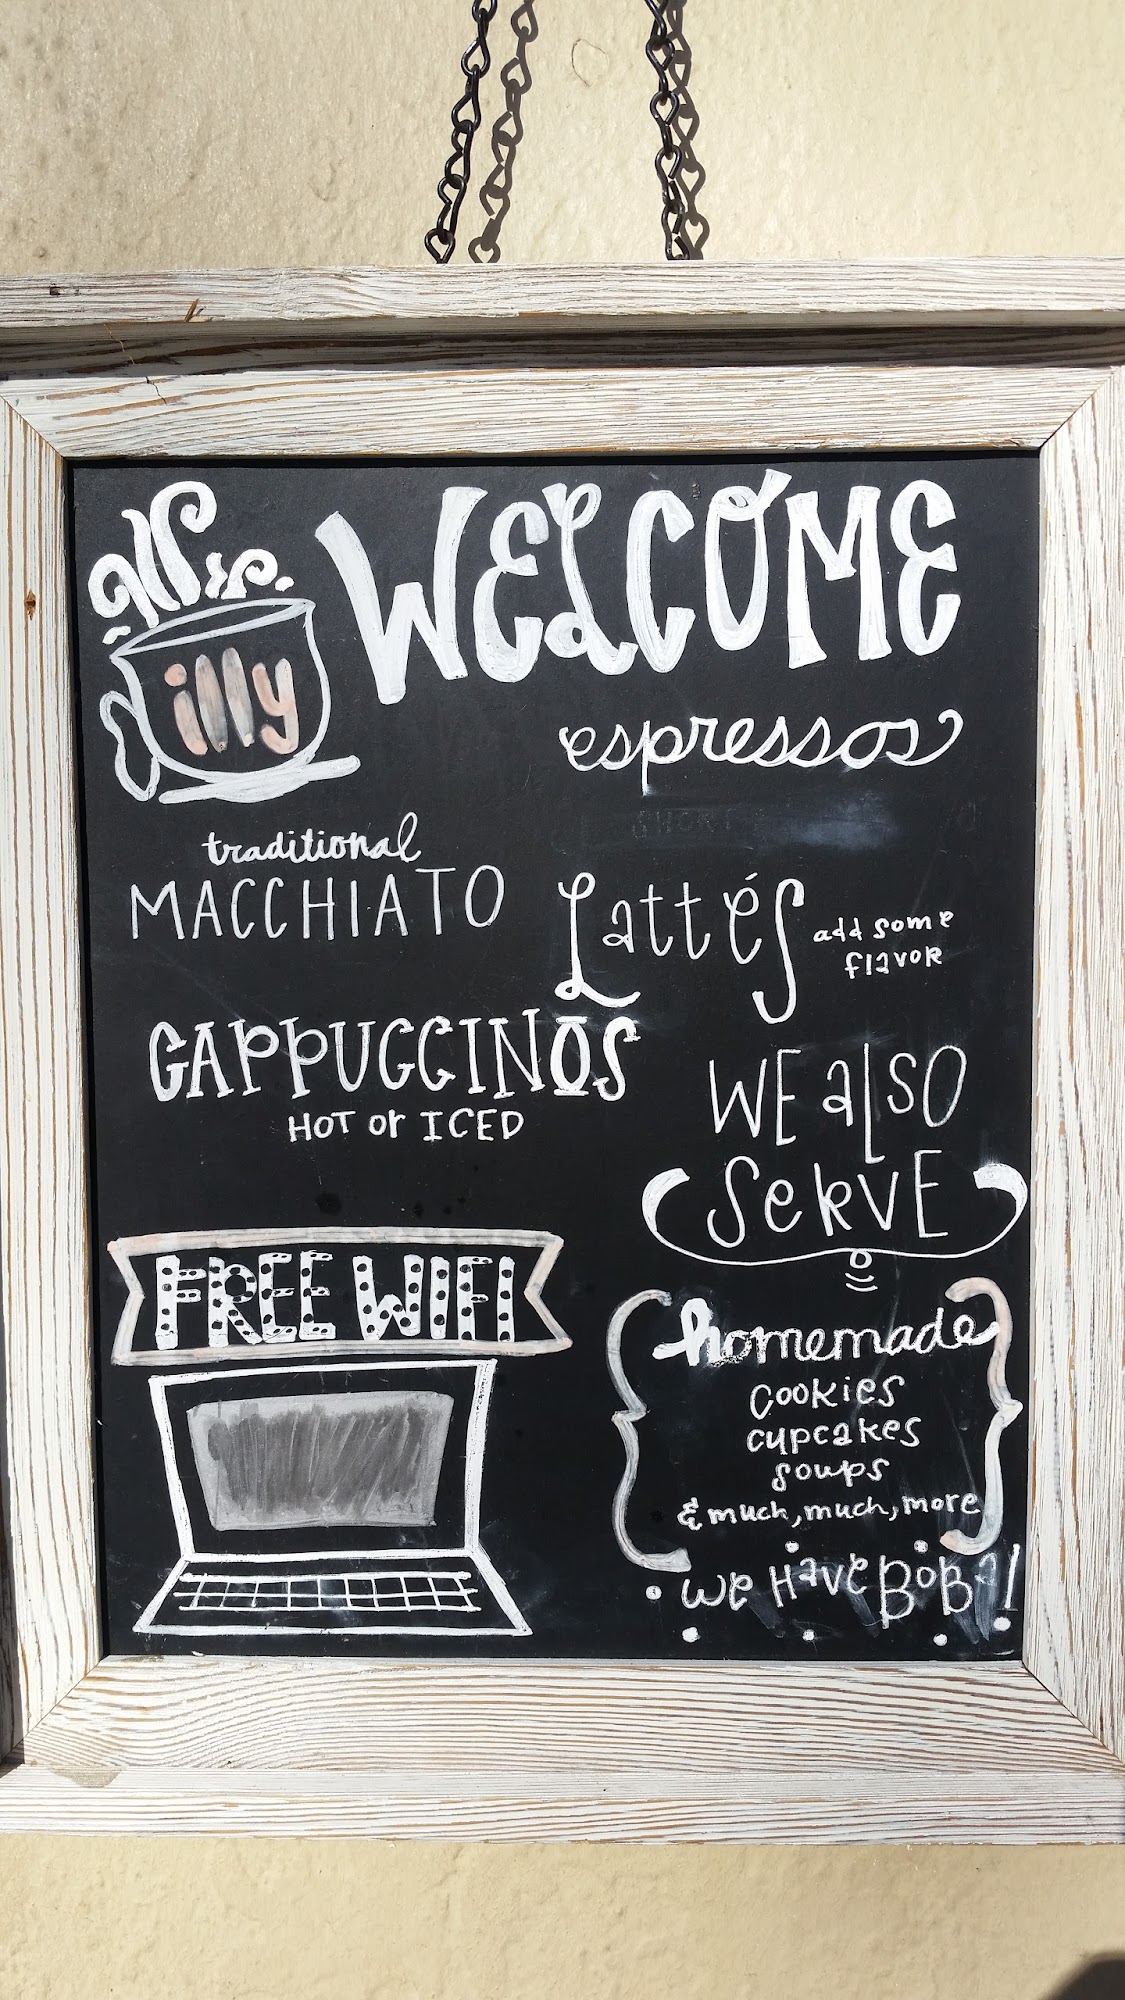 WELCOME
illy
espressos
traditional
MACCHIATO
Lattés
add some
flavor
CAPPUCCINOS
HOT or ICED
WE alSO
SERVE
FREE WIFI
homemade
cookies
cupcakes
soups
& much, much, more
we Have BOBa!